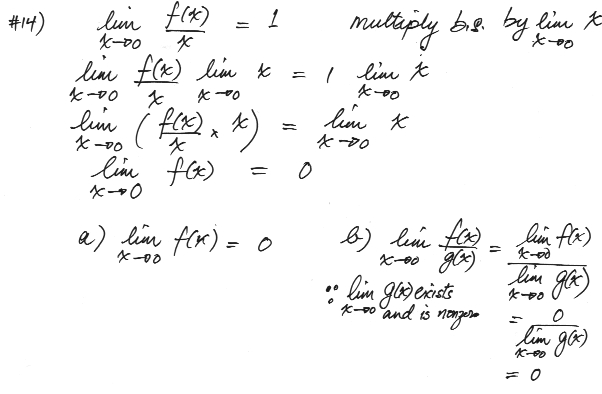 #14) lim x→0 f(x)/x = 1 multiply b.s. by lim x→0 x
lim x→0 f(x)/x lim x→0 x = 1 lim x→0 x
lim x→0 (f(x)/x × x) = lim x→0 x
lim x→0 f(x) = 0
a) lim x→0 f(x) = 0
b) lim x→0 f(x)/g(x) = lim x→0 f(x) / lim x→0 g(x)
∵ lim x→0 g(x) exists
and is nonzero
= 0 / lim x→0 g(x)
= 0